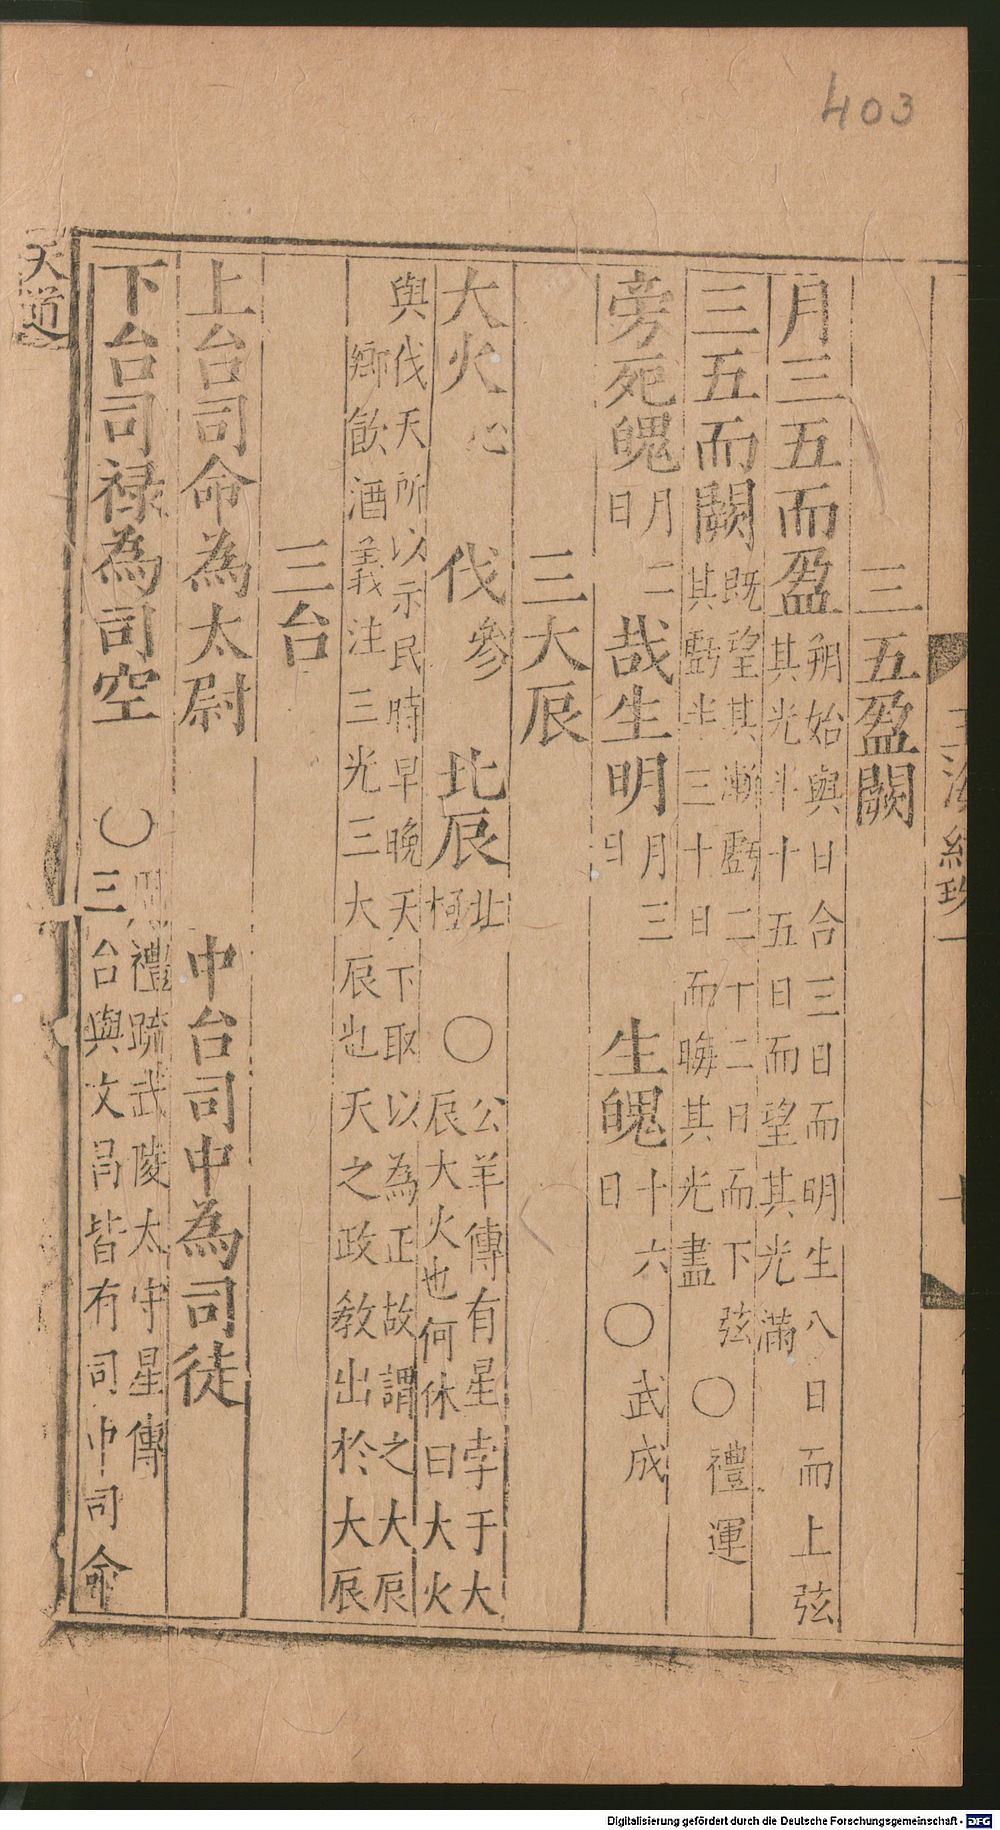 403
三五盈闕
月三五而盈朔始與日合三日而明生八日而上弦其光半十五日而望其光滿
三五而闕既望其漸虧二十二日而下弦其虧半三十日而晦其光盡〇禮運
旁死魄月二日 哉生明月三日 生魄十六日〇武成
三大辰
大火心 伐參 北辰北極〇公羊傳有星孛于大辰大火也何休曰大火
與伐天所以示民時早晚天下取以為正故謂之大辰
鄉飲酒義注三光三大辰也天之政教出於大辰
三台
上台司命為太尉 中台司中為司徒
下台司祿為司空〇周禮疏武陵太守星傳三台與文昌皆有司中司命
天道
Digitalisierung gefördert durch die Deutsche Forschungsgemeinschaft - DFG